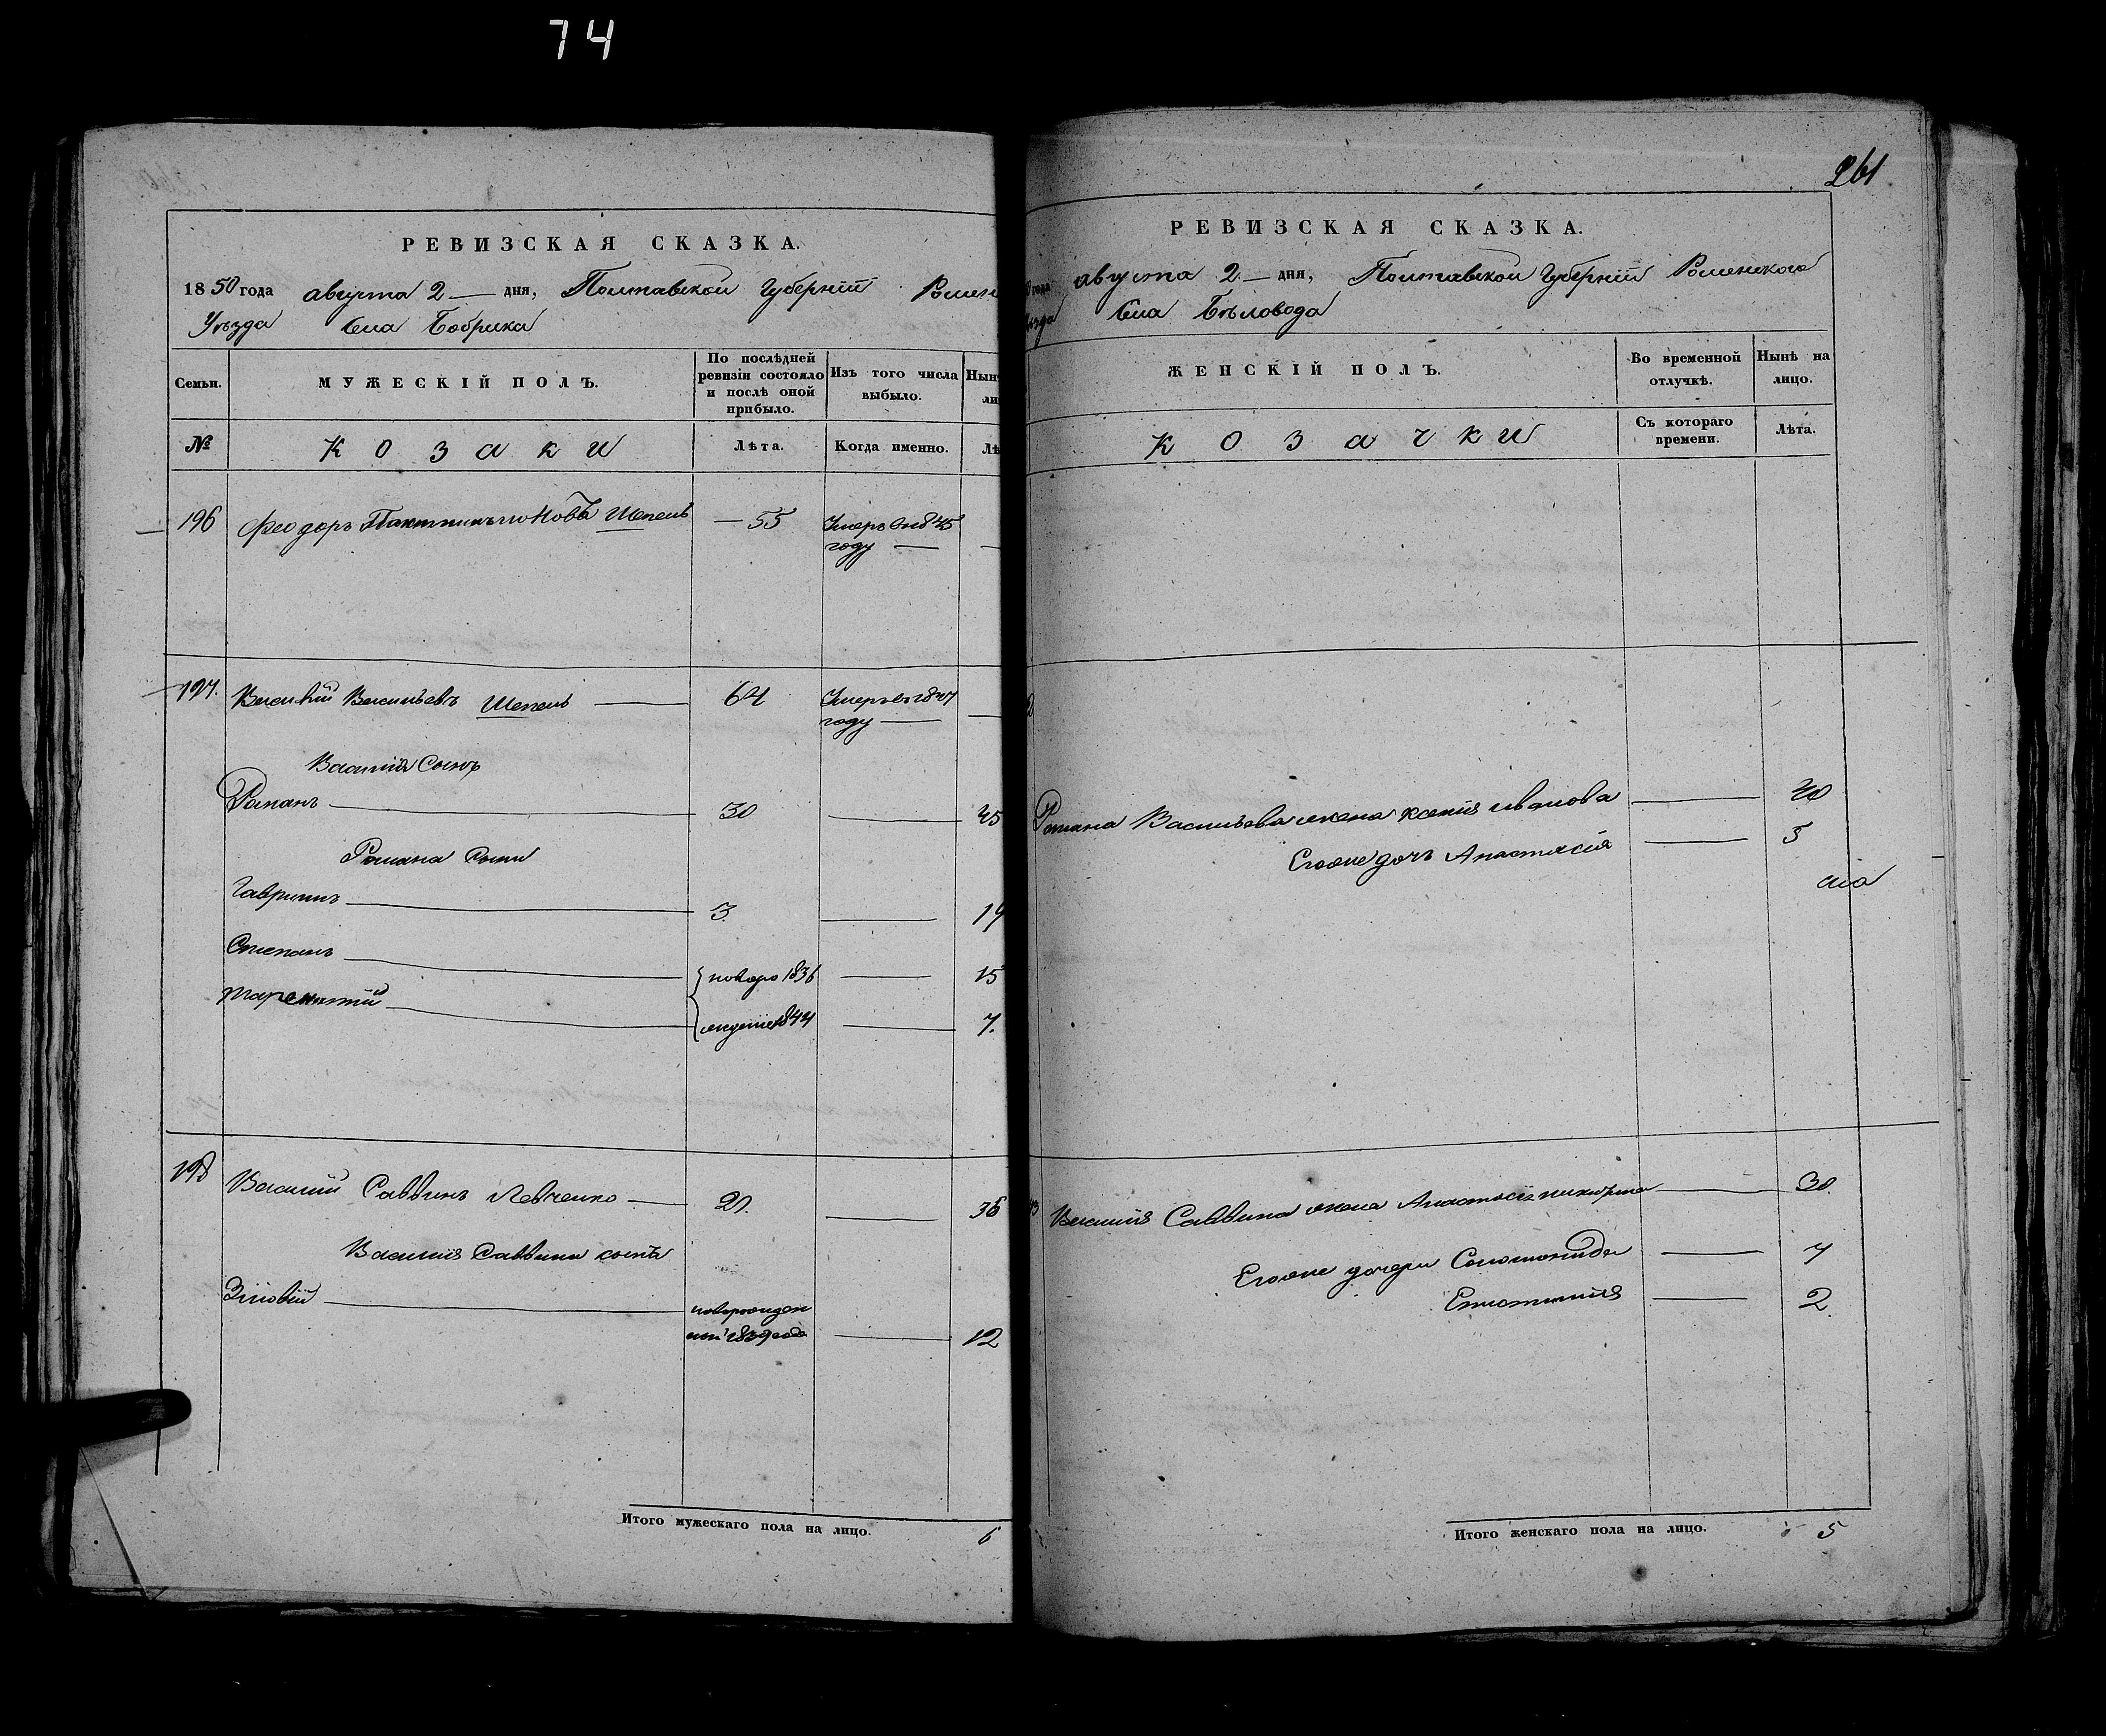 74
РЕВИЗСКАЯ СКАЗКА.
1850 года августа 2 дня, Полтавской Губернии Ромен
Уѣзда Села Бобрика
Семьи.
МУЖЕСКІЙ ПОЛЪ.
По послѣдней ревизіи состояло и послѣ оной прибыло.
Изъ того числа выбыло.
№
Козаки
Лѣта.
Когда именно.
196 Феодоръ Шепель 55 Умеръ въ 1845
году
197. Василій Васильевъ Шепель 64 Умеръ въ 1847
году
Василія Сынъ
Романъ 30 45
Романа Сыны
Гавріилъ 3. 19
Степанъ новоро 1836 15
жденные 1844 7.
198 Василий Саввинъ Левченко 21. 36
Василия Саввина сынъ
Зіновій новорожден
ный 1839 года 12
Итого мужескаго пола на лицо. 6
261
РЕВИЗСКАЯ СКАЗКА.
года августа 2 дня, Полтавской Губерніи Роменского
Села Бѣловода
ЖЕНСКІЙ ПОЛЪ.
Во временной отлучкѣ.
Нынѣ на лицо.
Козачки
Съ котораго времени.
Лѣта.
Романа Васильева жена Ксенія Иванова 40
Егоже дочь Анастасія 5
Василія Саввина жена Анастасія 30.
Егоже дочери Соломонида 7
2.
Итого женскаго пола на лицо. 5